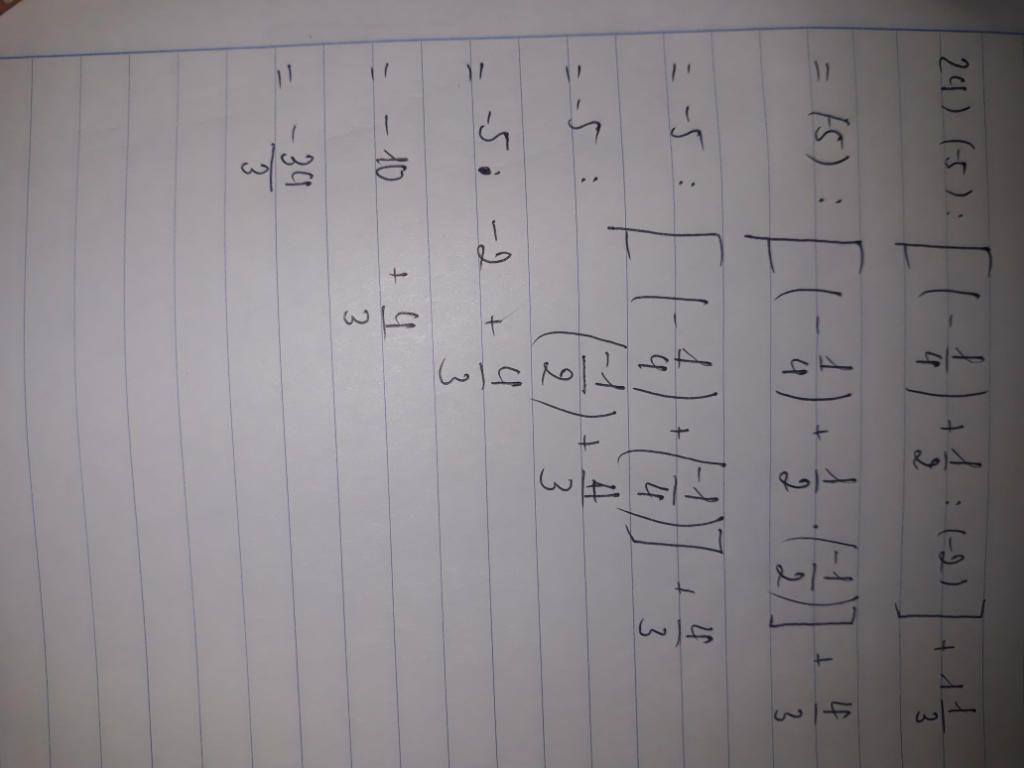 24) (-5) : [(-1/4) + 1/2 : (-2)] + 1 1/3
= (-5) : [(-1/4) + 1/2 · (-1/2)] + 4/3
= -5 : [(-1/4) + (-1/4)] + 4/3
= -5 : (-1/2) + 4/3
= -5 · -2 + 4/3
= -10 + 4/3
= -34/3